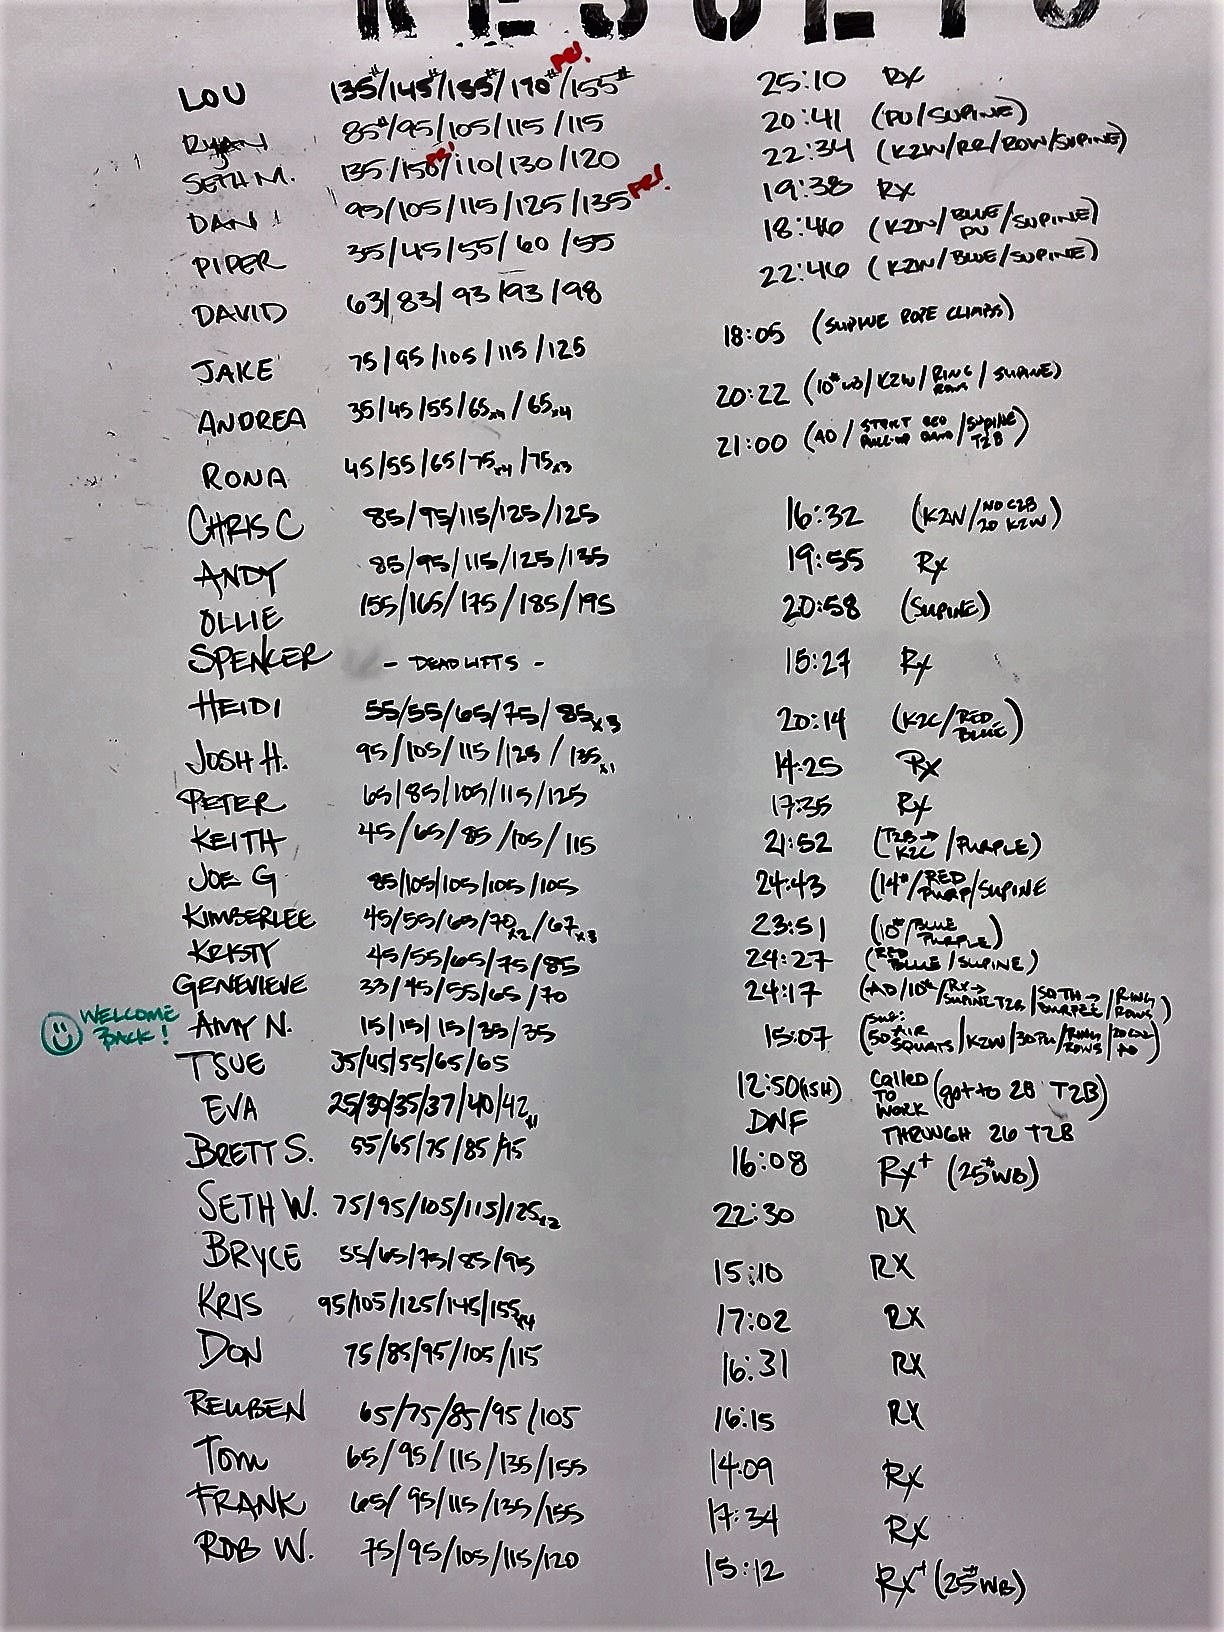 RESULTS
LOU 135#/145#/155#/190# PR!/155# 25:10 Rx
RYAN 85#/95/105/115/115 20:41 (PU/SUPINE)
SETH M. 135/150 PR!/110/130/120 22:34 (K2W/RR/ROW/SUPINE)
DAN 95/105/115/125/135 PR! 19:38 Rx
PIPER 35/45/55/60/55 18:46 (K2W/BLUE PU/SUPINE)
DAVID 63/83/93/93/98 22:46 (K2W/BLUE/SUPINE)
JAKE 75/95/105/115/125 18:05 (SUPINE ROPE CLIMBS)
ANDREA 35/45/55/65x4/65x4 20:22 (10# WB/K2W/RING ROW/SUPINE)
RONA 45/55/65/75x4/75x3 21:00 (AD/STRICT RED PULL-UP BAND/SUPINE T2B)
CHRIS C 85/95/115/125/125 16:32 (K2W/NO C2B 20 K2W)
ANDY 85/95/115/125/135 19:55 Rx
OLLIE 155/165/175/185/195 20:58 (SUPINE)
SPENCER - DEADLIFTS - 15:27 Rx
HEIDI 55/55/65/75/85x3 20:14 (K2C/RED BLUE)
JOSH H. 95/105/115/125/135x1 14:25 Rx
PETER 65/85/105/115/125 17:35 Rx
KEITH 45/65/85/105/115 21:52 (T2B→K2C/PURPLE)
JOE G 85/105/105/105/105 24:43 (14#/RED PURP/SUPINE
KIMBERLEE 45/55/65/70x2/67x3 23:51 (10#/BLUE PURPLE)
KRISTY 45/55/65/75/85 24:27 (RED BLUE/SUPINE)
GENEVIEVE 33/45/55/65/70 24:17 (AD/10#/Rx→SUPINE T2B/50TH→BURPEE/RING ROWS)
WELCOME BACK! AMY N. 15/15/15/35/35 15:07 (SUB: 50 AIR SQUATS/K2W/30PU/RING ROWS/20 CAL AD)
TSUE 35/45/55/65/65 12:50(ISH) CALLED TO WORK (got to 28 T2B)
EVA 25/30/35/37/40/42x1 DNF THROUGH 26 T2B
BRETT S. 55/65/75/85/95 16:08 Rx+ (25# WB)
SETH W. 75/95/105/115/125x2 22:30 RX
BRYCE 55/65/75/85/95 15:10 RX
KRIS 95/105/125/145/155x4 17:02 RX
DON 75/85/95/105/115 16:31 RX
REUBEN 65/75/85/95/105 16:15 RX
Tom 65/95/115/135/155 14:09 Rx
FRANK 65/95/115/135/155 17:34 RX
ROB W. 75/95/105/115/120 15:12 Rx+ (25# WB)